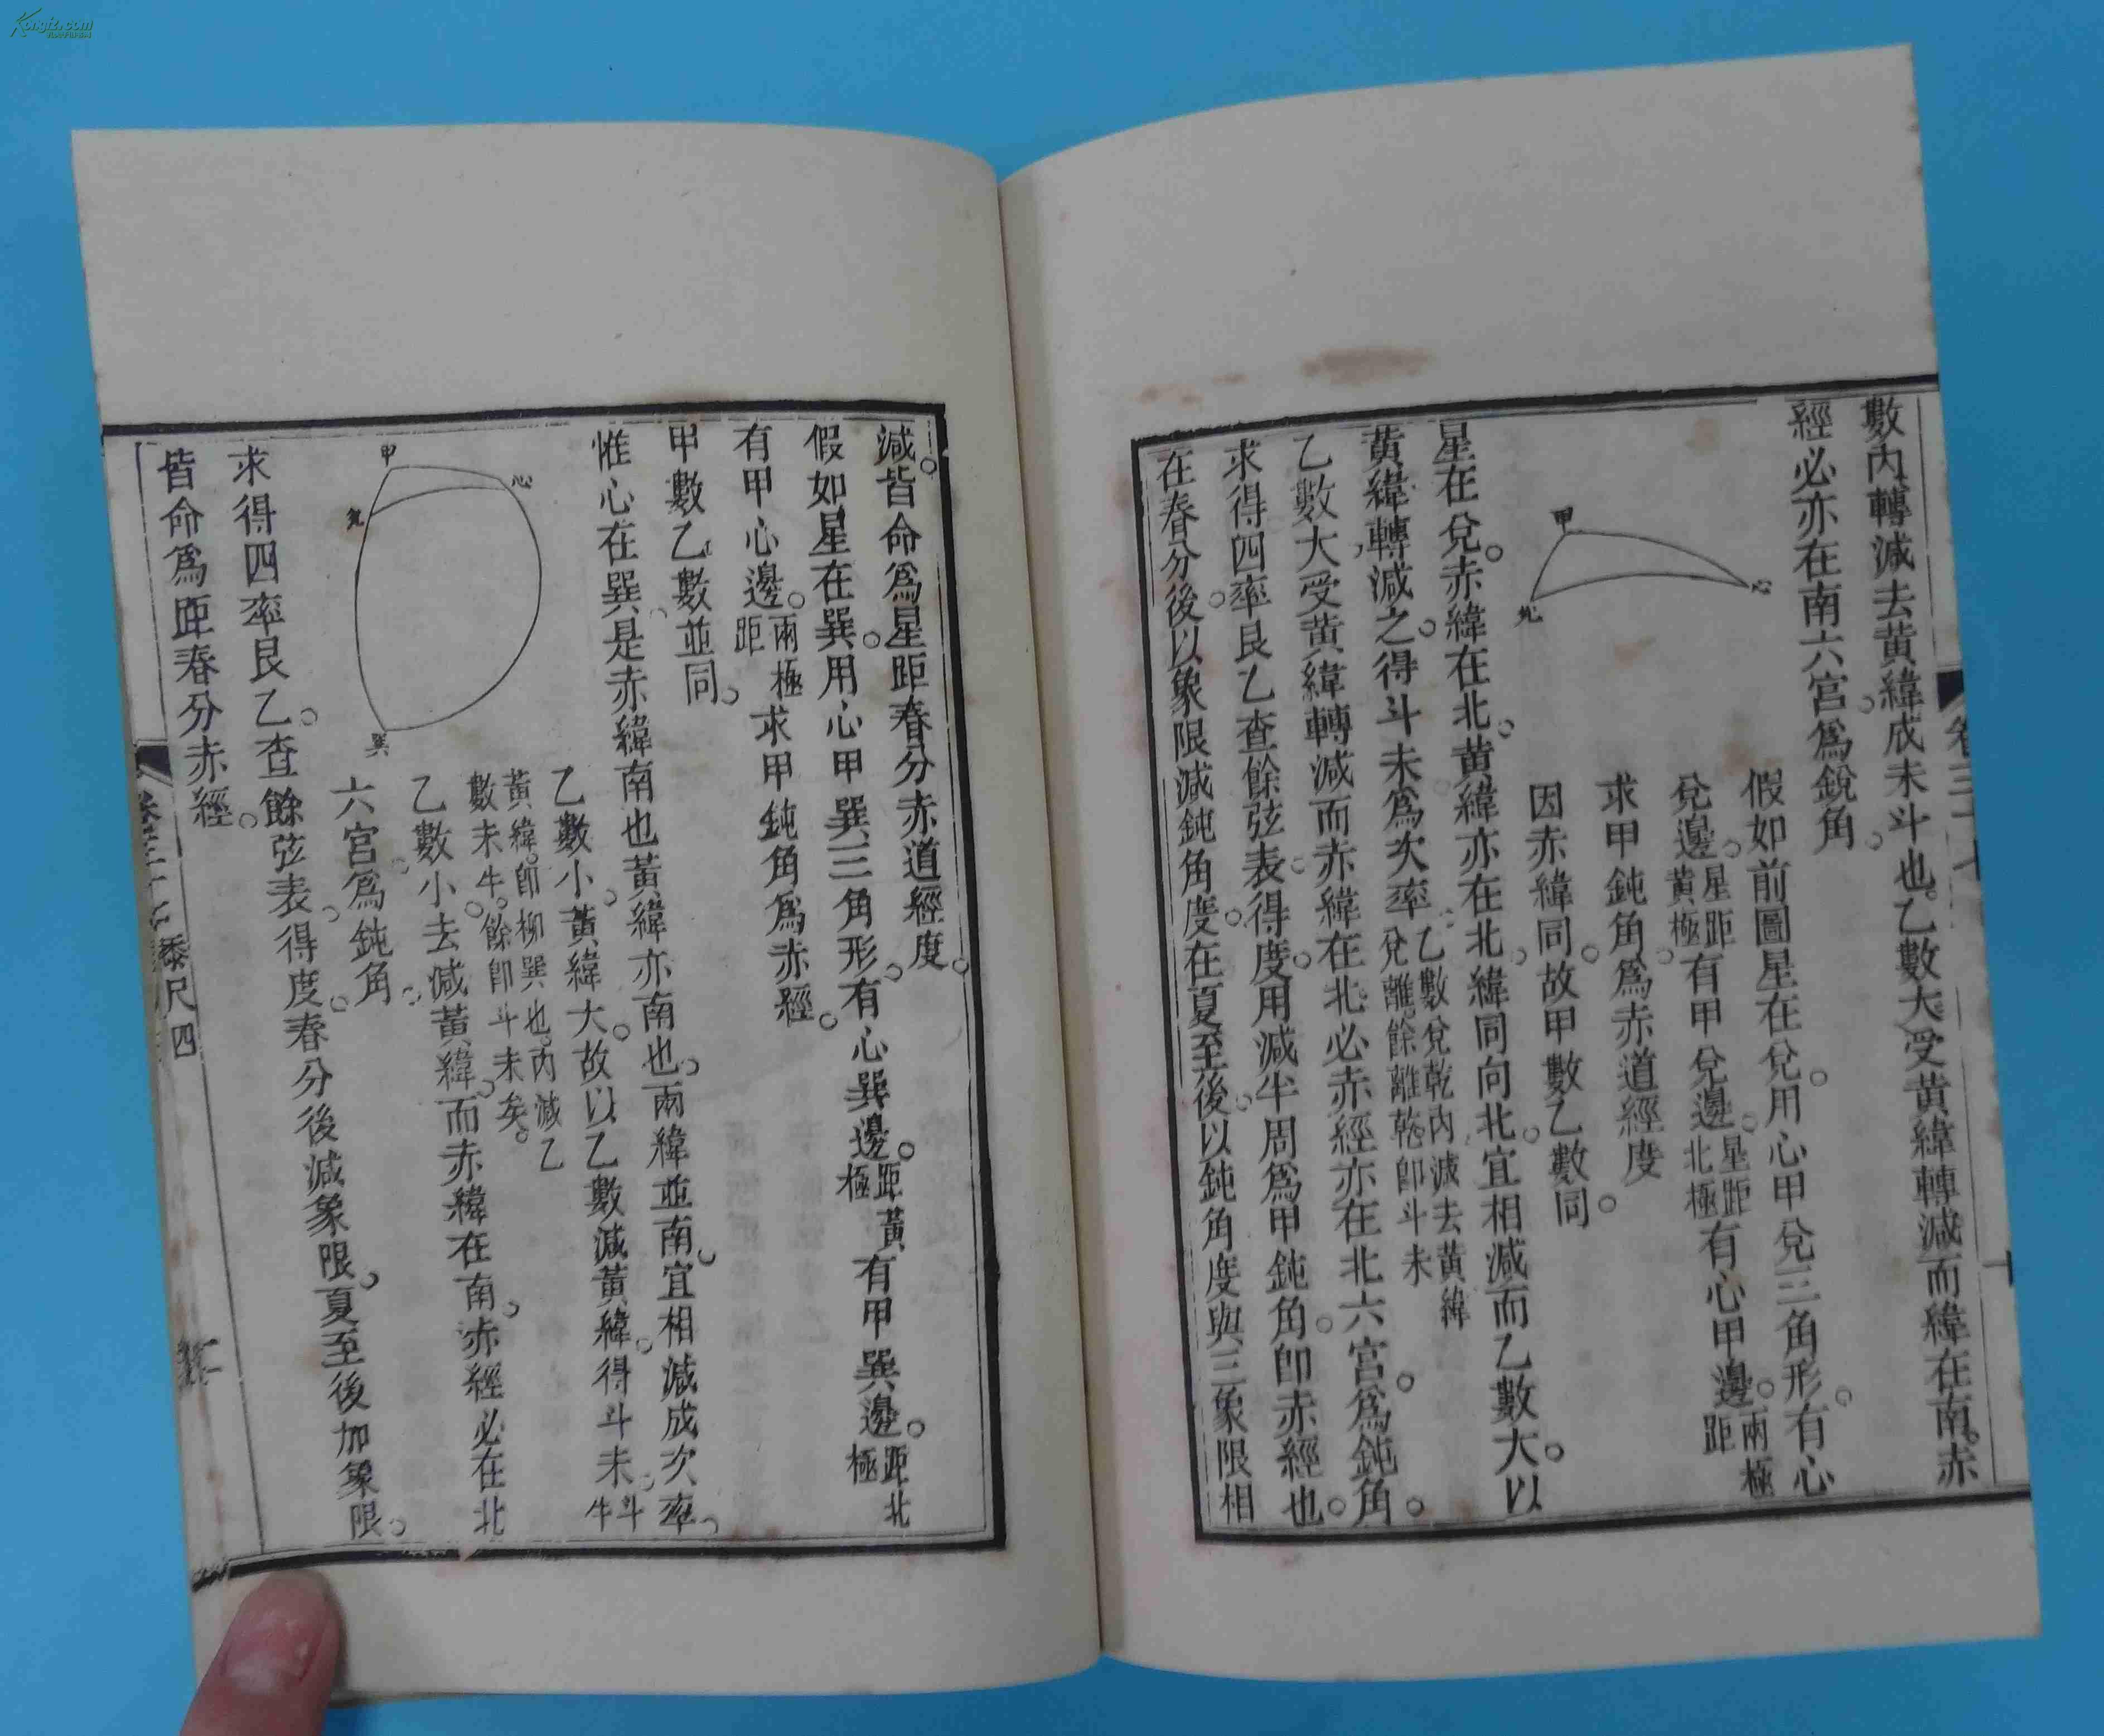 數內轉減去黃緯成未斗也。乙數大受黃緯轉減而緯在南。赤
經必亦在南六宮。爲銳角。
甲
心
兌
假如前圖星在兌。用心甲兌三角形。有心
兌邊。星距黃極有甲兌邊。星距北極有心甲邊。兩極距
求甲鈍角。爲赤道經度
因赤緯同。故甲數乙數同。
星在兌。赤緯在北。黃緯亦在北。緯同向北。宜相減。而乙數大。以
黃緯轉減之。得斗未爲次率。乙數兌乾內減去黃緯兌離。餘離乾。卽斗未
乙數大。受黃緯轉減。而赤緯在北。必赤經亦在北六宮。爲鈍角。
求得四率艮乙。查餘弦表。得度。用減半周爲甲鈍角。卽赤經也。
在春分後。以象限減鈍角度。在夏至後。以鈍角度與三象限相
減。皆命爲星距春分赤道經度。
假如星在巽。用心甲巽三角形。有心巽邊。距黃極有甲巽邊。距北極
有甲心邊。兩極距求甲鈍角爲赤經。
甲數乙數並同。
惟心在巽。是赤緯南也。黃緯亦南也。兩緯並南。宜相減成次率。
甲
心
兌
巽
乙數小。黃緯大。故以乙數減黃緯。得斗未。斗牛
黃緯。卽柳巽也。內減乙數未牛。餘卽斗未矣。
乙數小。去減黃緯。而赤緯在南。赤經必在北
六宮。爲鈍角。
求得四率艮乙。查餘弦表。得度。春分後減象限。夏至後加象限。
皆命爲距春分赤經。
黍尺四
Kongfz.com